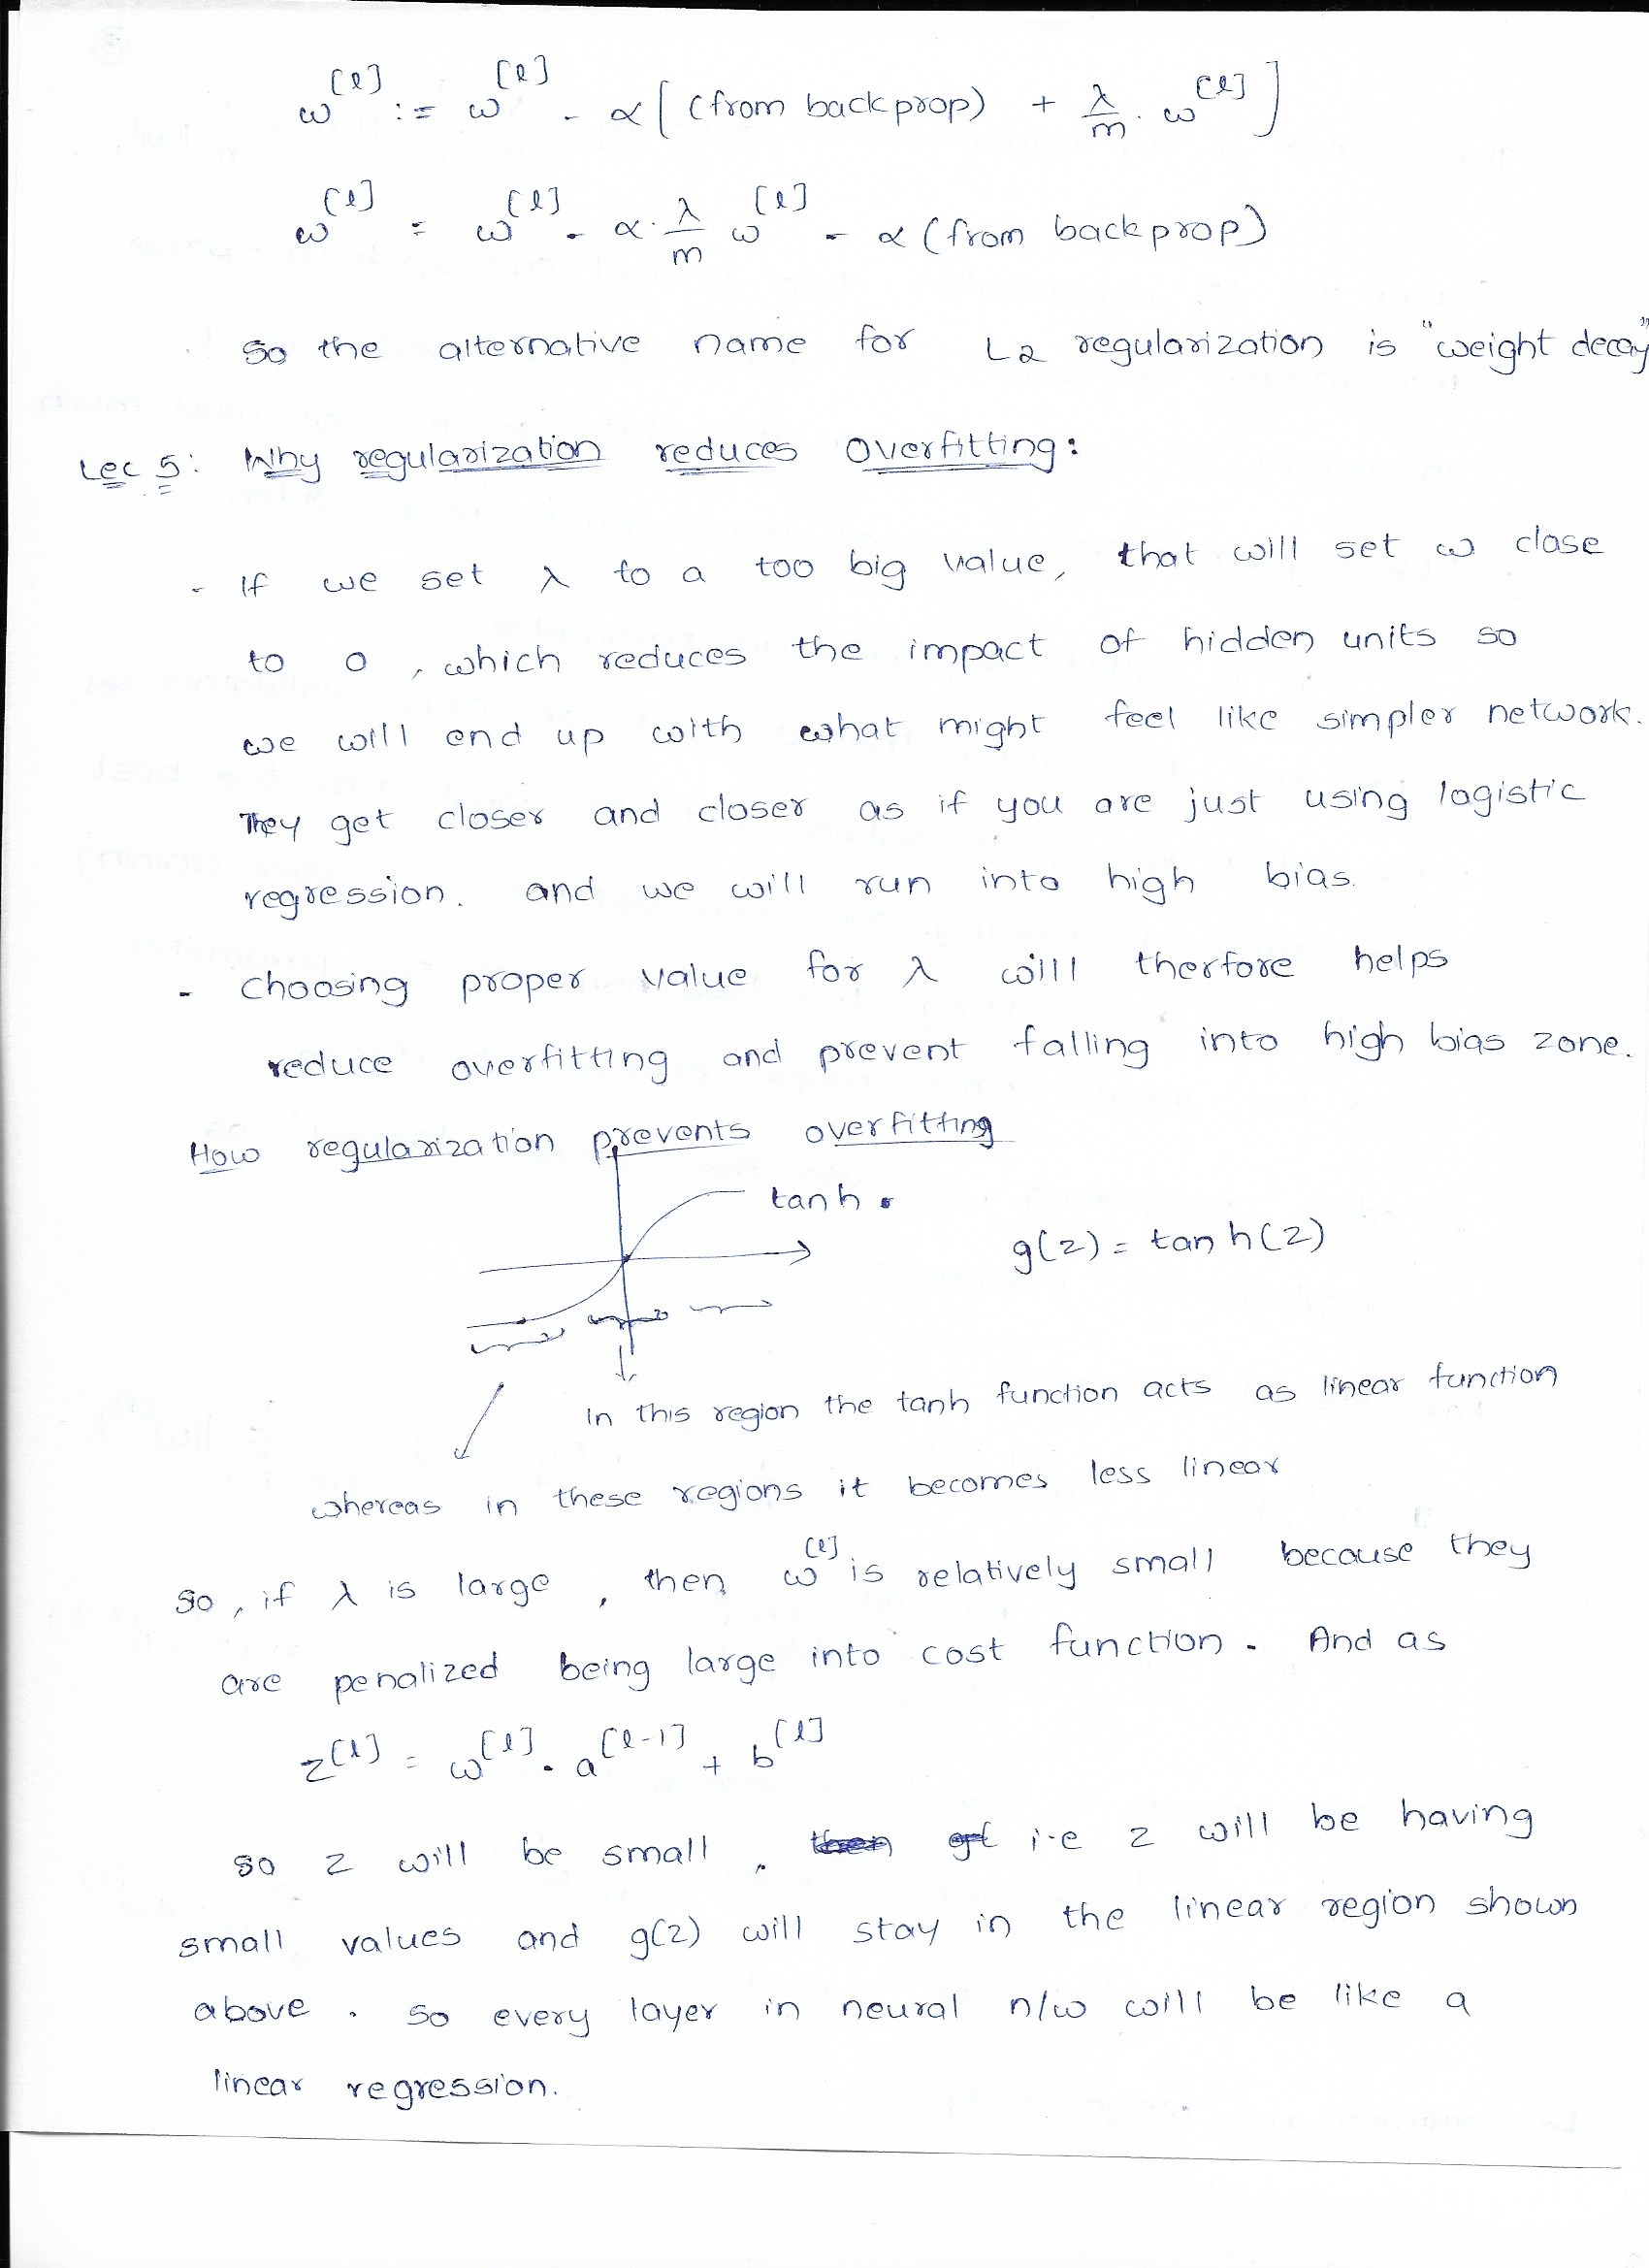 ω^[l] := ω^[l] - α[(from backprop) + λ/m . ω^[l]]
ω^[l] = ω^[l] - α . λ/m ω^[l] - α (from backprop)
So the alternative name for L2 regularization is "weight decay"
Lec 5: Why regularization reduces Overfitting:
- If we set λ to a too big value, that will set ω close
to 0, which reduces the impact of hidden units so
we will end up with what might feel like simpler network.
They get closer and closer as if you are just using logistic
regression. and we will run into high bias.
- choosing proper value for λ will therfore helps
reduce overfitting and prevent falling into high bias zone.
How regularization prevents overfitting
tanh.
g(z) = tanh(z)
In this region the tanh function acts as linear function
whereas in these regions it becomes less linear
So, if λ is large, then ω^[l] is relatively small because they
are penalized being large into cost function. And as
z^[l] = ω^[l] . a^[l-1] + b^[l]
so z will be small, i.e z will be having
small values and g(z) will stay in the linear region shown
above. So every layer in neural n/w will be like a
linear regression.